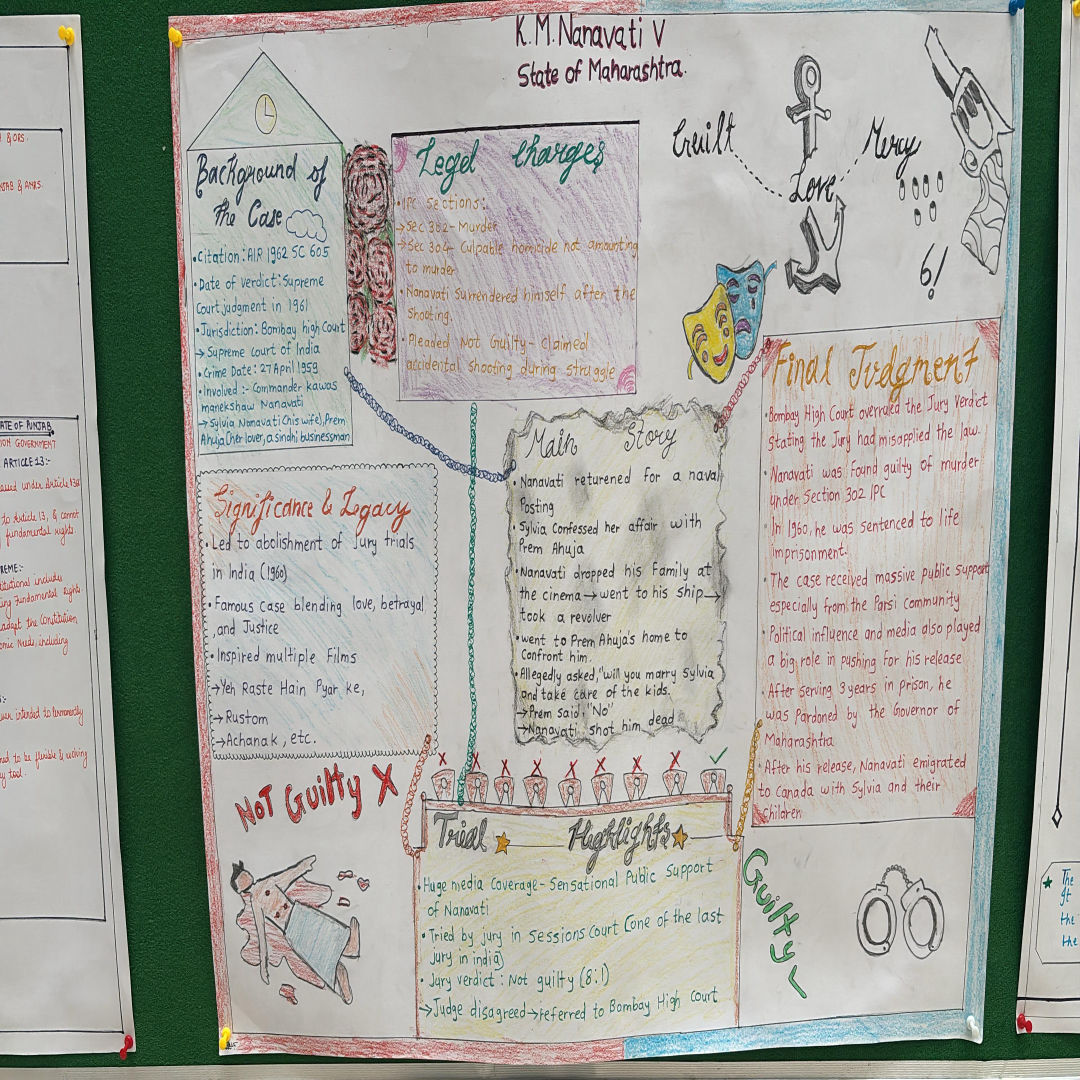 K.M.Nanavati V
State of Maharashtra.
Background of
The Case
•Citation:AIR 1962 SC 605
•Date of verdict:Supreme
Court judgment in 1961
•Jurisdiction: Bombay high Court
→ Supreme Court of India
•Crime Date: 27 April 1959
•Involved :- Commander kawas
manekshaw Nanavati
→ Sylvia Nanavati (his wife), Prem
Ahuja (her lover, a sindhi businessman
Legel Charges
•IPC Sections:
→Sec 302- Murder
→Sec 304- Culpable homicide not amounting
to murder
•Nanavati Surrendered himself after the
shooting.
•Pleaded Not Guilty- Claimed
accidental shooting during struggle
Guilt
Mercy
Love
6!
Significance & Legacy
•Led to abolishment of Jury trials
in India (1960)
•Famous Case blending love, betrayal
,and Justice
•Inspired multiple Films
→Yeh Raste Hain Pyar ke,
→Rustom
→Achanak, etc.
Main Story
•Nanavati returened for a naval
Posting
•Sylvia Confessed her affair with
Prem Ahuja
•Nanavati dropped his Family at
the cinema→went to his ship→
took a revolver
•went to Prem Ahuja's home to
Confront him.
•Allegedly asked,"will you marry Sylvia
and take care of the kids.
→Prem said, "No"
→Nanavati shot him dead
Final Judgment
•Bombay High Court overruled the Jury Verdict
stating the Jury had misapplied the law.
•Nanavati was found guilty of murder
under Section 302 IPC
•In 1960, he was sentenced to life
imprisonment.
•The case received massive public support
especially from the Parsi Community
•Political influence and media also played
a big role in pushing for his release
•After serving 3 years in prison, he
was Pardoned by the Governor of
Maharashtra
•After his release, Nanavati emigrated
to Canada with Sylvia and their
Children
NOT Guilty X
Trial Highlights
•Huge media Coverage- Sensational Public Support
of Nanavati
•Tried by jury in Sessions Court (one of the last
Jury in india)
•Jury verdict : Not guilty (8:1)
→Judge disagreed→referred to Bombay High Court
Guilty
& ORS.
& ANRS.
STATE OF PUNJAB
GOVERNMENT
ARTICLE 13:-
under Article 13
to Article 13, & cannot
fundamental rights.
includes
Fundamental Rights
the Constitution
Needs, including
intended to
to be flexible & evolving
tool.
The
the
the